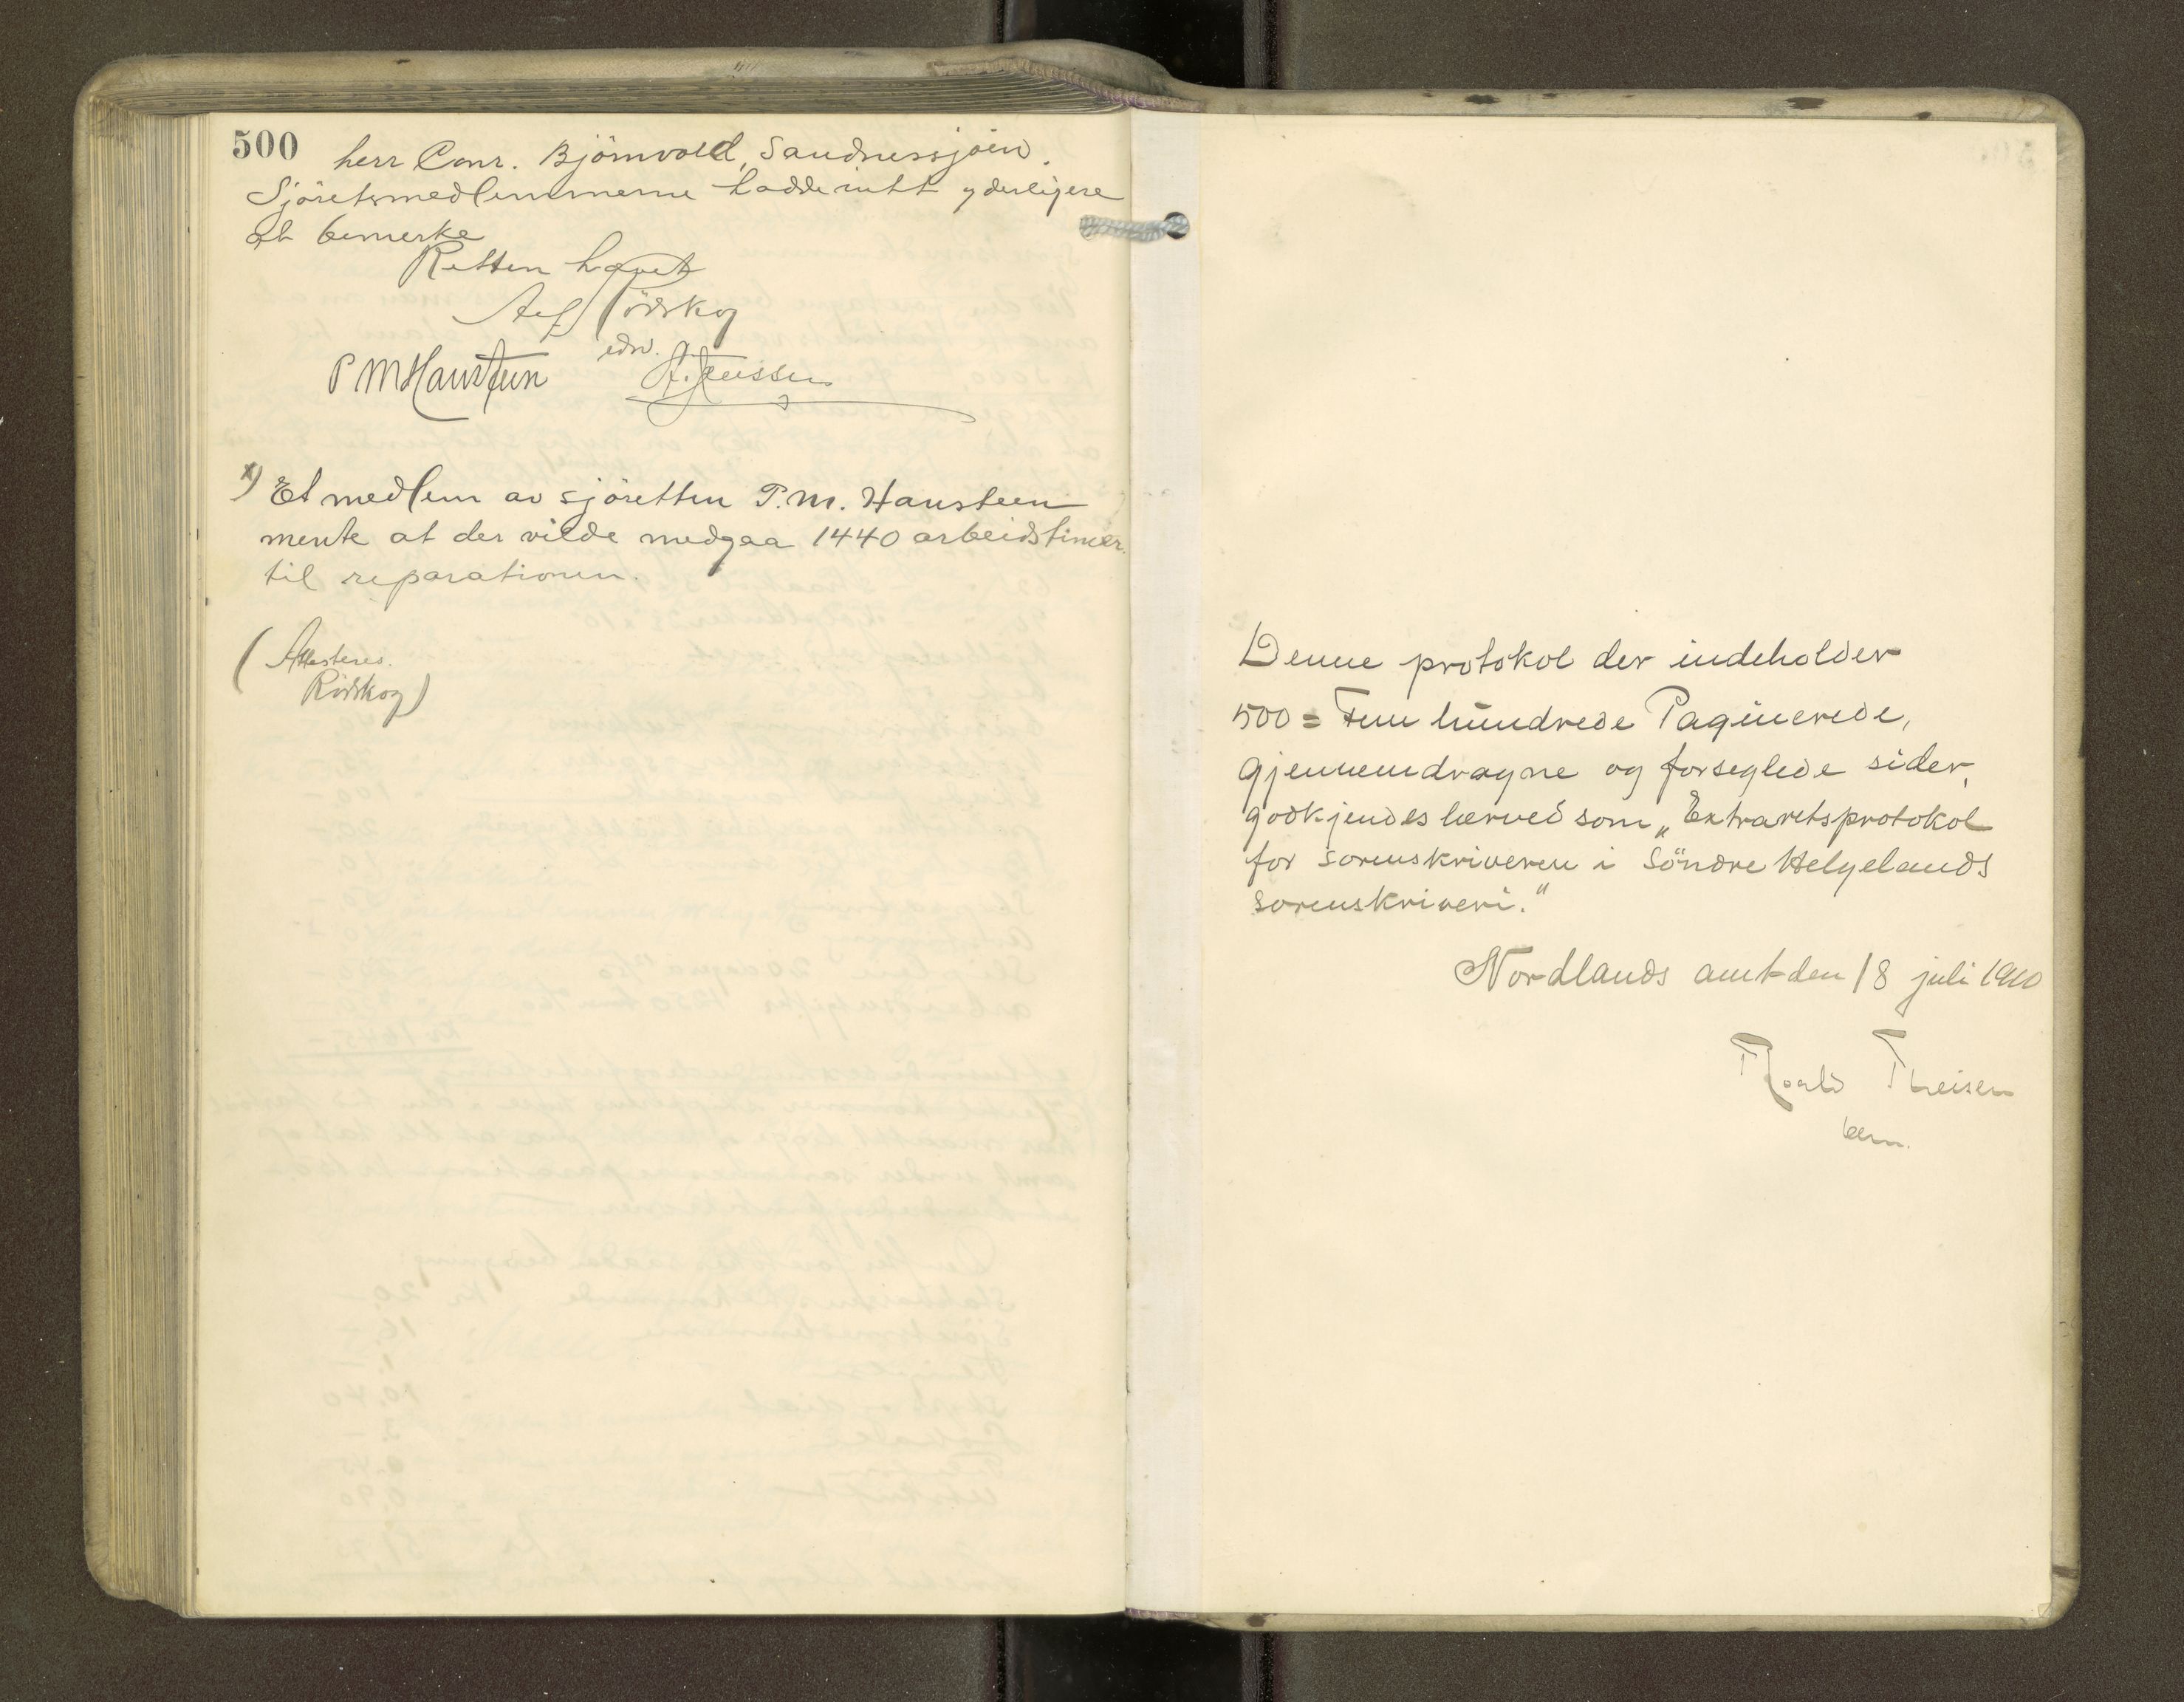 500
herr Conr. Björnvold, Sandnessjöen.
Sjöretsmedlemmerne hadde intet yderligere
at bemerke
Retten hævet
Alf Rödskog
P M Hansteen edv. Jenssen
x) Et medlem av sjöretten P.M. Hansteen
mente at der vilde medgaa 1440 arbeidstimer
til reparationen.
(Attesteres.
Rödskog)
Denne protokol der indeholder
500 = Fem hundrede Paginerede,
gjennemdragne og forseglede sider,
godkjendes herved som „Extraretsprotokol
for sorenskriveren i Söndre Helgelands
sorenskriveri."
Nordlands amt den 18 juli 1910
Roald Theisen
bem.